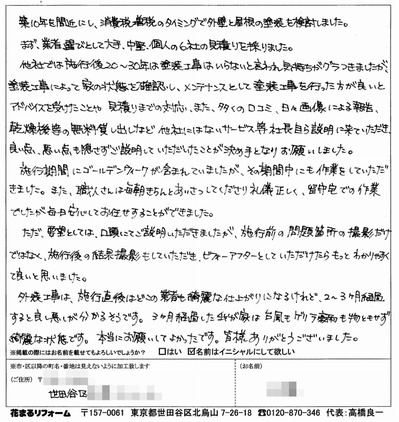 築10年を間近にし、消費税増税のタイミングで外壁と屋根の塗装を検討しました。
まず、業者選びとして大手、中堅、個人の6社の見積りを採りました。
他社では施行後20～30年は塗装工事はいらないと言われ、気持ちがグラつきましたが、
塗装工事によって家の状態を確認し、メンテナンスとして塗装工事を行った方が良いと
アドバイスを受けたことや見積りまでの対応、また、多くの口コミ、日々画像による報告、
乾燥機等の無料貸し出しなど他社にはないサービス等社長自ら説明に来ていただき、
良い点、悪い点も隠さずご説明していただいたことが決め手となりお願いしました。
施行期間にゴールデンウィークが含まれていましたが、その期間中にも作業をしていただ
きました。また、職人さんは毎朝きちんとあいさつしてくださり礼儀正しく、留守宅での作業
でしたが毎日安心してお任せすることができました。
ただ、要望としては、口頭にてご説明いただきましたが、施行前の問題箇所の撮影だけ
ではなく、施行後の結果撮影もしていただき、ビフォーアフターとしていただけたらもっとわかりやすく
て良いと思いました。
外装工事は、施行直後はどこの業者も綺麗な仕上がりになるけれど、2～3ヶ月経過
すると良し悪しが分かるそうです。3ヶ月経過した我が家は台風もゲリラ豪雨も物ともせず
綺麗な状態です。本当にお願いしてよかったです。皆様、ありがとうございました。
※掲載の際にはお名前を載せてもよろしいでしょうか? □はい ☑名前はイニシャルにして欲しい
※市・区以降の町名・番地は見えないように加工致します
(ご住所) 〒
(お名前)
世田谷区
花まるリフォーム 〒157-0061 東京都世田谷区北烏山7-26-18 ☎0120-870-346 代表:高橋良一